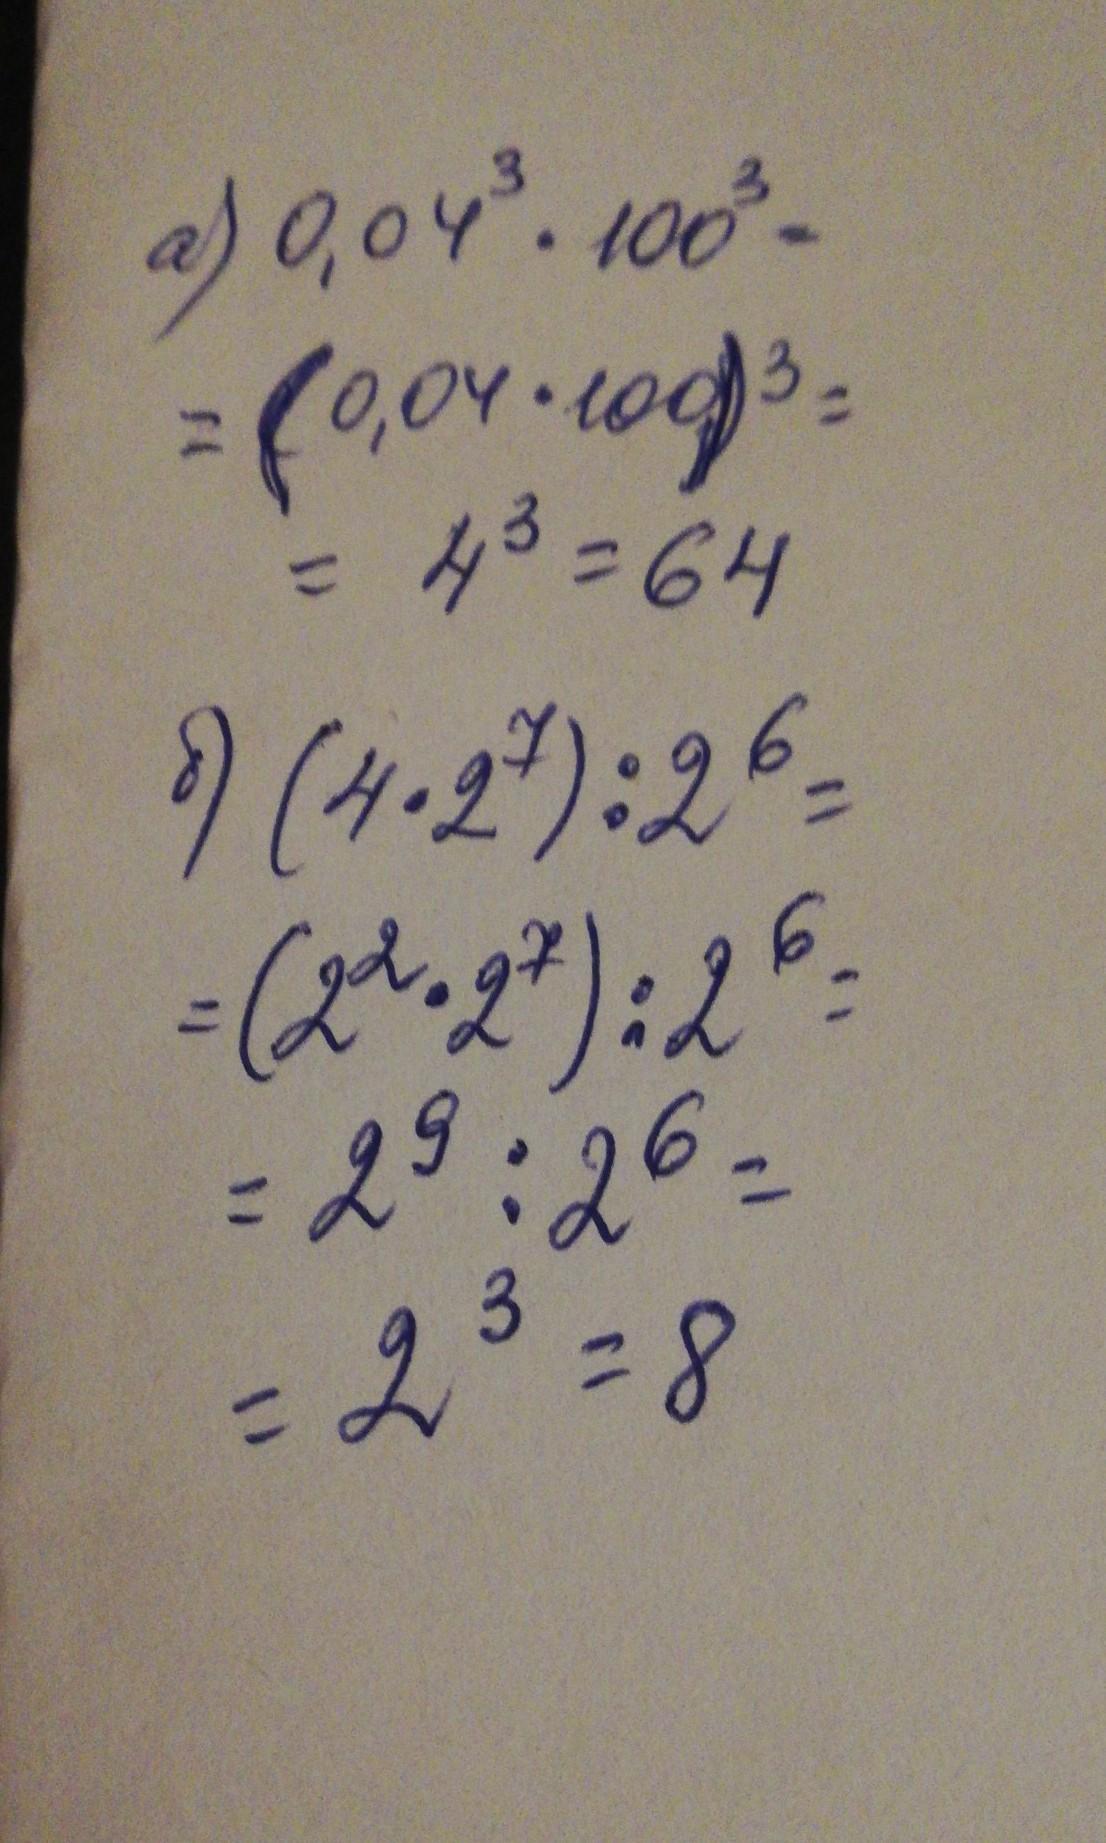 а) 0,04³ · 100³ -
= (0,04 · 100)³ =
= 4³ = 64
б) (4 · 2⁷) : 2⁶ =
= (2² · 2⁷) : 2⁶ =
= 2⁹ : 2⁶ =
= 2³ = 8